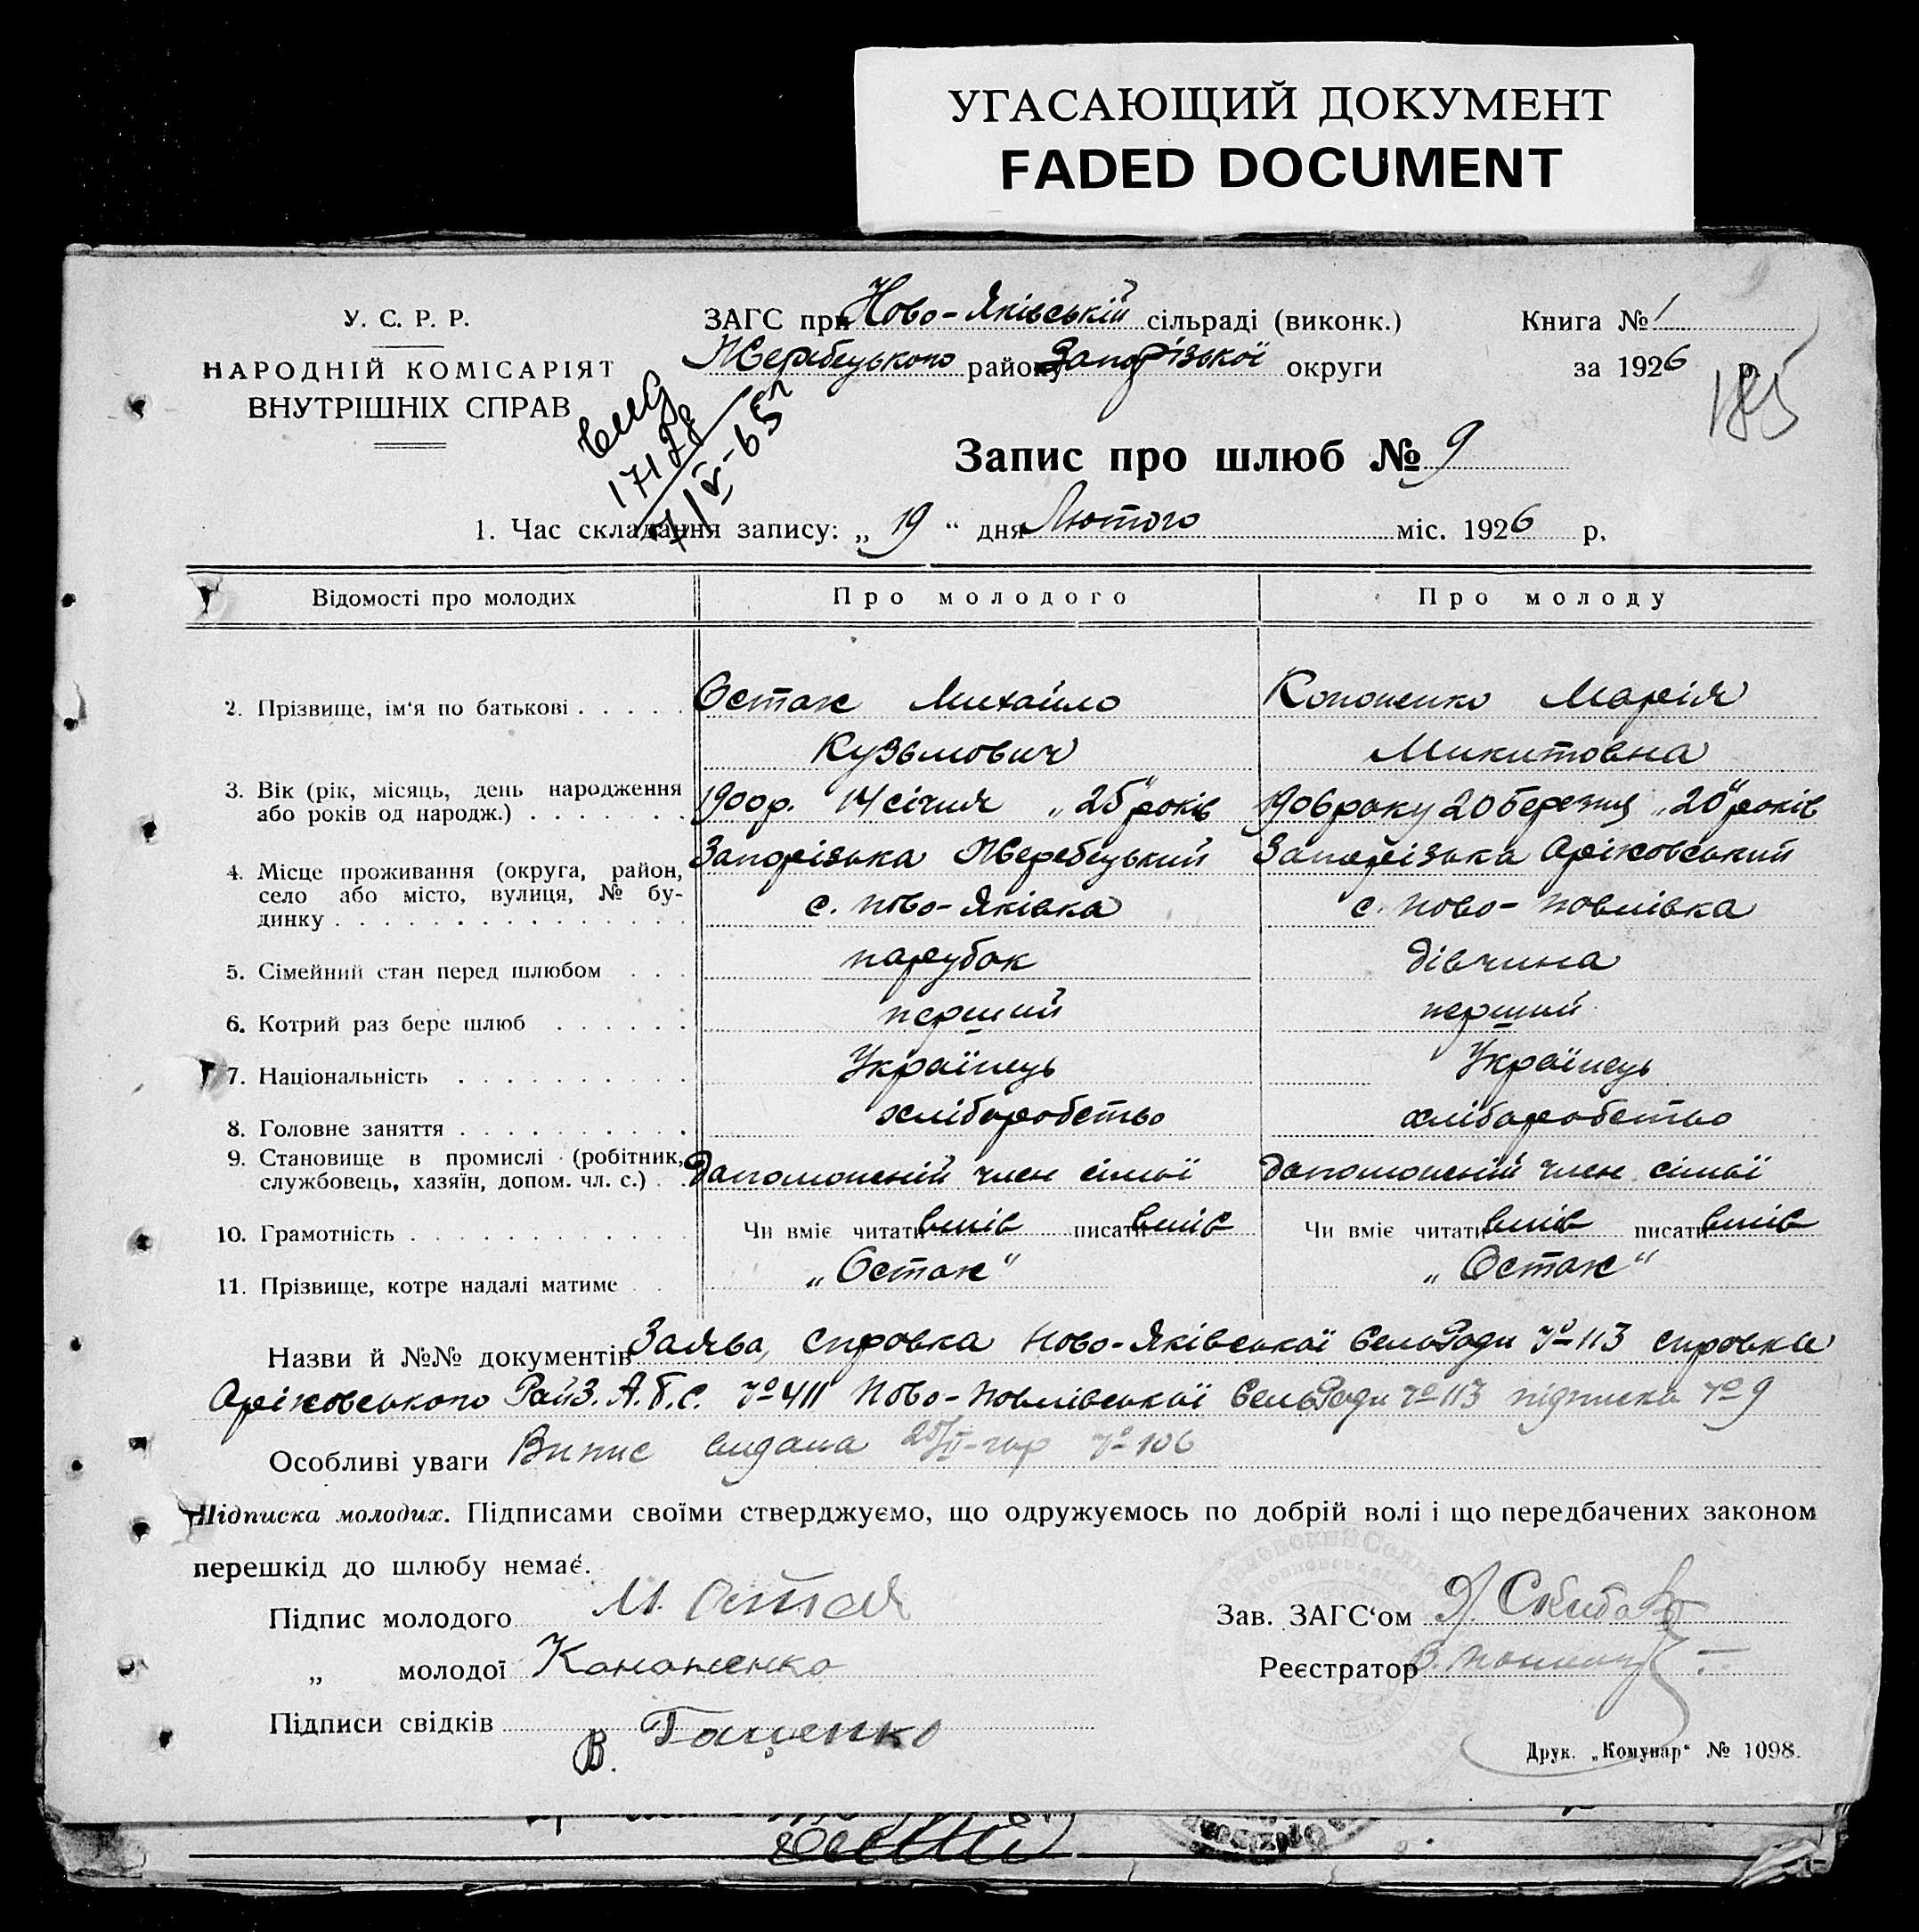 УГАСАЮЩИЙ ДОКУМЕНТ
FADED DOCUMENT
У. С. Р. Р.
НАРОДНІЙ КОМІСАРІЯТ
ВНУТРІШНІХ СПРАВ
ЗАГС при Ново-Яківській сільраді (виконк.)
Жеребецького району Запорізької округи
Книга № 1
за 1926 р.
185
17128
Запис про шлюб № 9
1. Час складання запису: „ 19 “ дня Лютого міс. 1926 р.
Відомості про молодих Про молодого Про молоду
2. Прізвище, ім'я по батькові Остак Михайло Кононенко Марія
Кузьмович Микитовна
3. Вік (рік, місяць, день народження 1900р. 14 січня „25" років 1906 року 20 березня „20" років
або років од народж.)
4. Місце проживання (округа, район, Запорізька Жеребецький Запорізька Оріховський
село або місто, вулиця, № бу- с. Ново-Яківка с. Ново-Павлівка
динку
5. Сімейний стан перед шлюбом парубок дівчина
6. Котрий раз бере шлюб перший перший
7. Національність Українець Українець
8. Головне заняття хліборобство хліборобство
9. Становище в промислі (робітник, Допоможений член сімьї Допоможений член сімьї
службовець, хазяїн, допом. чл. с.)
10. Грамотність Чи вміє читати вміє писати вміє Чи вміє читати вміє писати вміє
11. Прізвище, котре надалі матиме „Остак“ „Остак“
Назви й №№ документів Заява, справка Ново-Яківської СельРади № 113 справка
Оріховського РайЗ.А.Г.С. № 411 Ново-Павлівської СельРади № 113 підписка № 9
Особливі уваги Випис видана № 106
Підписка молодих. Підписами своїми стверджуємо, що одружуємось по добрій волі і що передбачених законом
перешкід до шлюбу немає.
Підпис молодого М. Остак
„ молодої Кононенко
Підписи свідків
В. Гаценко
Зав. ЗАГС'ом
Реєстратор
Друк. „Комунар" № 1098.